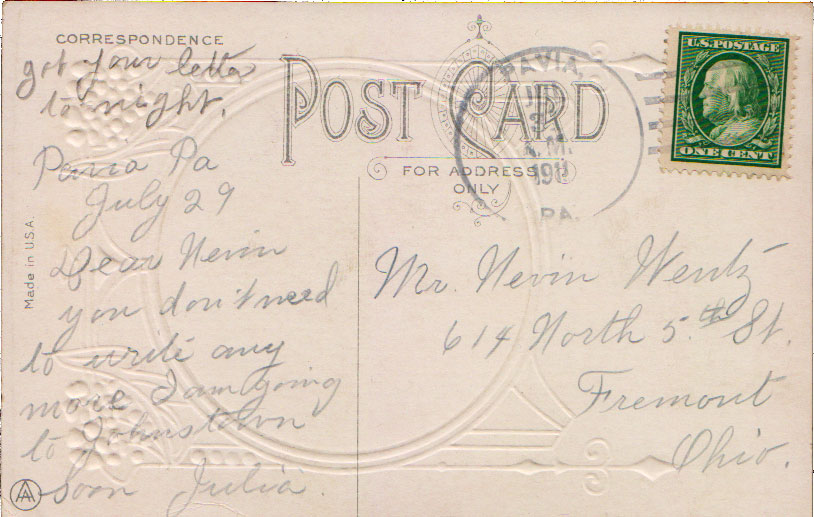 CORRESPONDENCE
got your letter
to night.
Pavia Pa
July 29
Dear Nevin
you don't need
to write any
more I am going
to Johnstown
soon Julia.
Made in U.S.A.
POST CARD
FOR ADDRESS
ONLY
PAVIA,
A.M.
PA.
U.S. POSTAGE
ONE CENT
Mr. Nevin Wentz
614 North 5th St.
Fremont
Ohio.